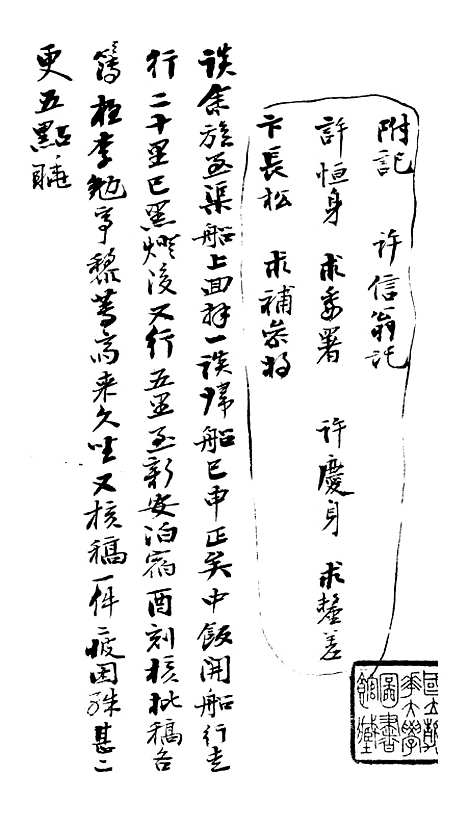 附記　許信翁託
許恒身　求委署　許慶身　求釐差
卞長松　求補參將
談余旋至渠船上面拜一談歸船已申正矣中飯開船行走
行二十里已黑燈後又行五里至新安泊宿酉刻核批稿各
簿極李勉亭黎蓴齋來久坐又核稿一件疲困殊甚二
更五點睡
國立清華大學圖書館藏